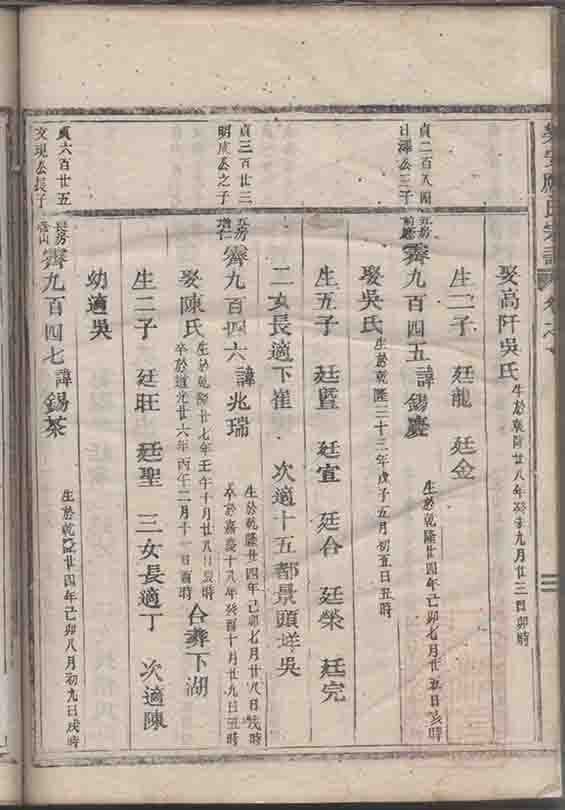 應氏宗譜
娶高阡吳氏 生於乾隆廿八年癸未九月廿三日卯時
生二子 廷龍 廷金
貞二百八四
日澤公三子
五房
霽九百四五 諱錫慶 生於乾隆廿四年己卯七月廿五日亥時
娶吳氏 生於乾隆三十三年戊子五月初五日丑時
生五子 廷暨 廷宣 廷合 廷榮 廷完
二女長適下崔 次適十五都景頭垟吳
貞三百廿三
明虎公之子
五房
霽九百四六 諱兆瑞 生於乾隆廿四年己卯七月廿八日戌時
卒於嘉慶十八年癸酉十月廿九日丑時
娶陳氏 生於乾隆廿七年壬午十月廿八日辰時
卒於道光廿六年丙午二月十一日酉時 合葬下湖
生二子 廷旺 廷聖 三女長適丁 次適陳
幼適吳
貞六百廿五
文現公長子
長房
霽九百四七 諱錫棻 生於乾隆廿四年己卯八月初九日戌時